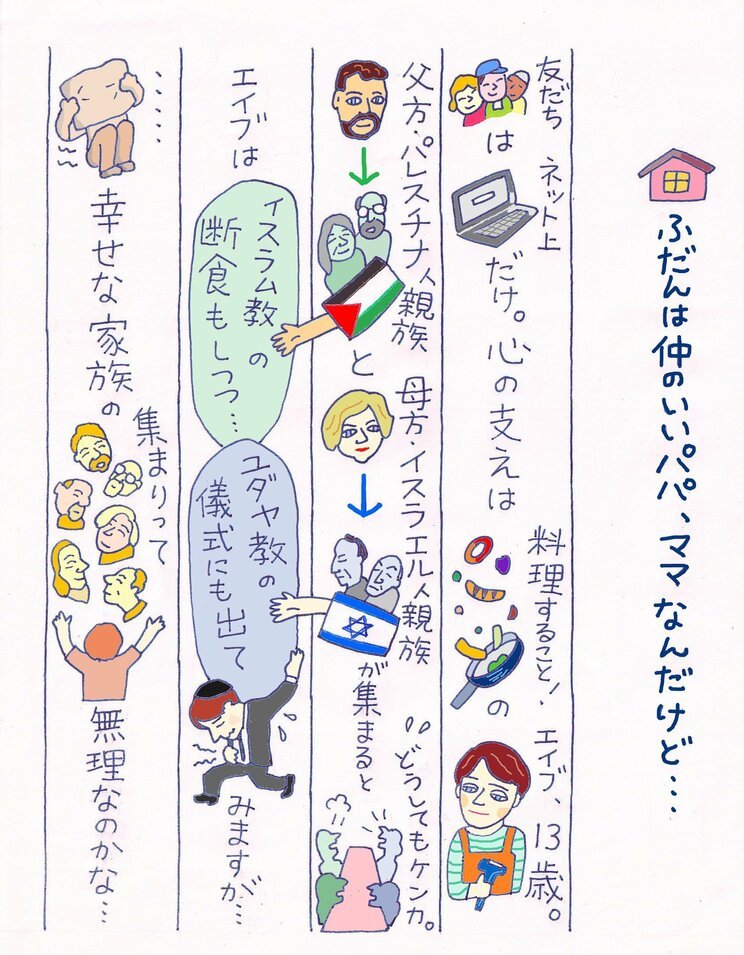 ふだんは仲のいいパパ、ママなんだけど…
友だちはネット上だけ。心の支えは料理すること!のエイブ、13歳。
父方・パレスチナ人親族と母方・イスラエル人親族が集まるとどうしてもケンカ。
エイブはイスラム教の断食もしつつ…ユダヤ教の儀式にも出てみますが…
……幸せな家族の集まりって無理なのかな…